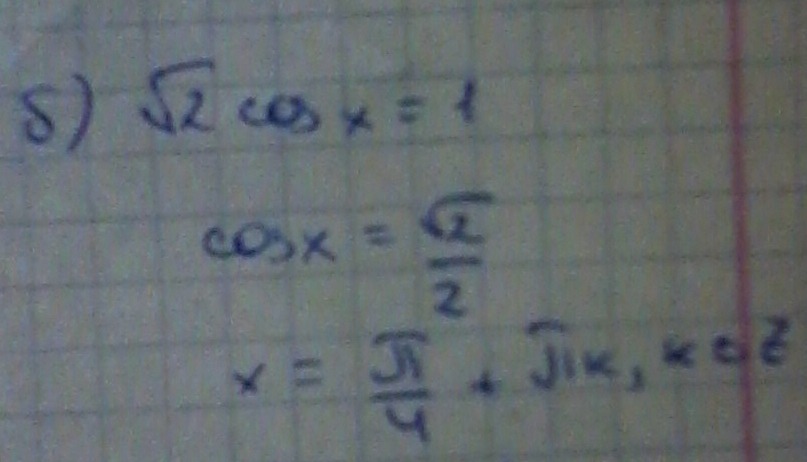 б) √2 cos x = 1
cos x = √2/2
x = π/4 + πк, к ∈ Z